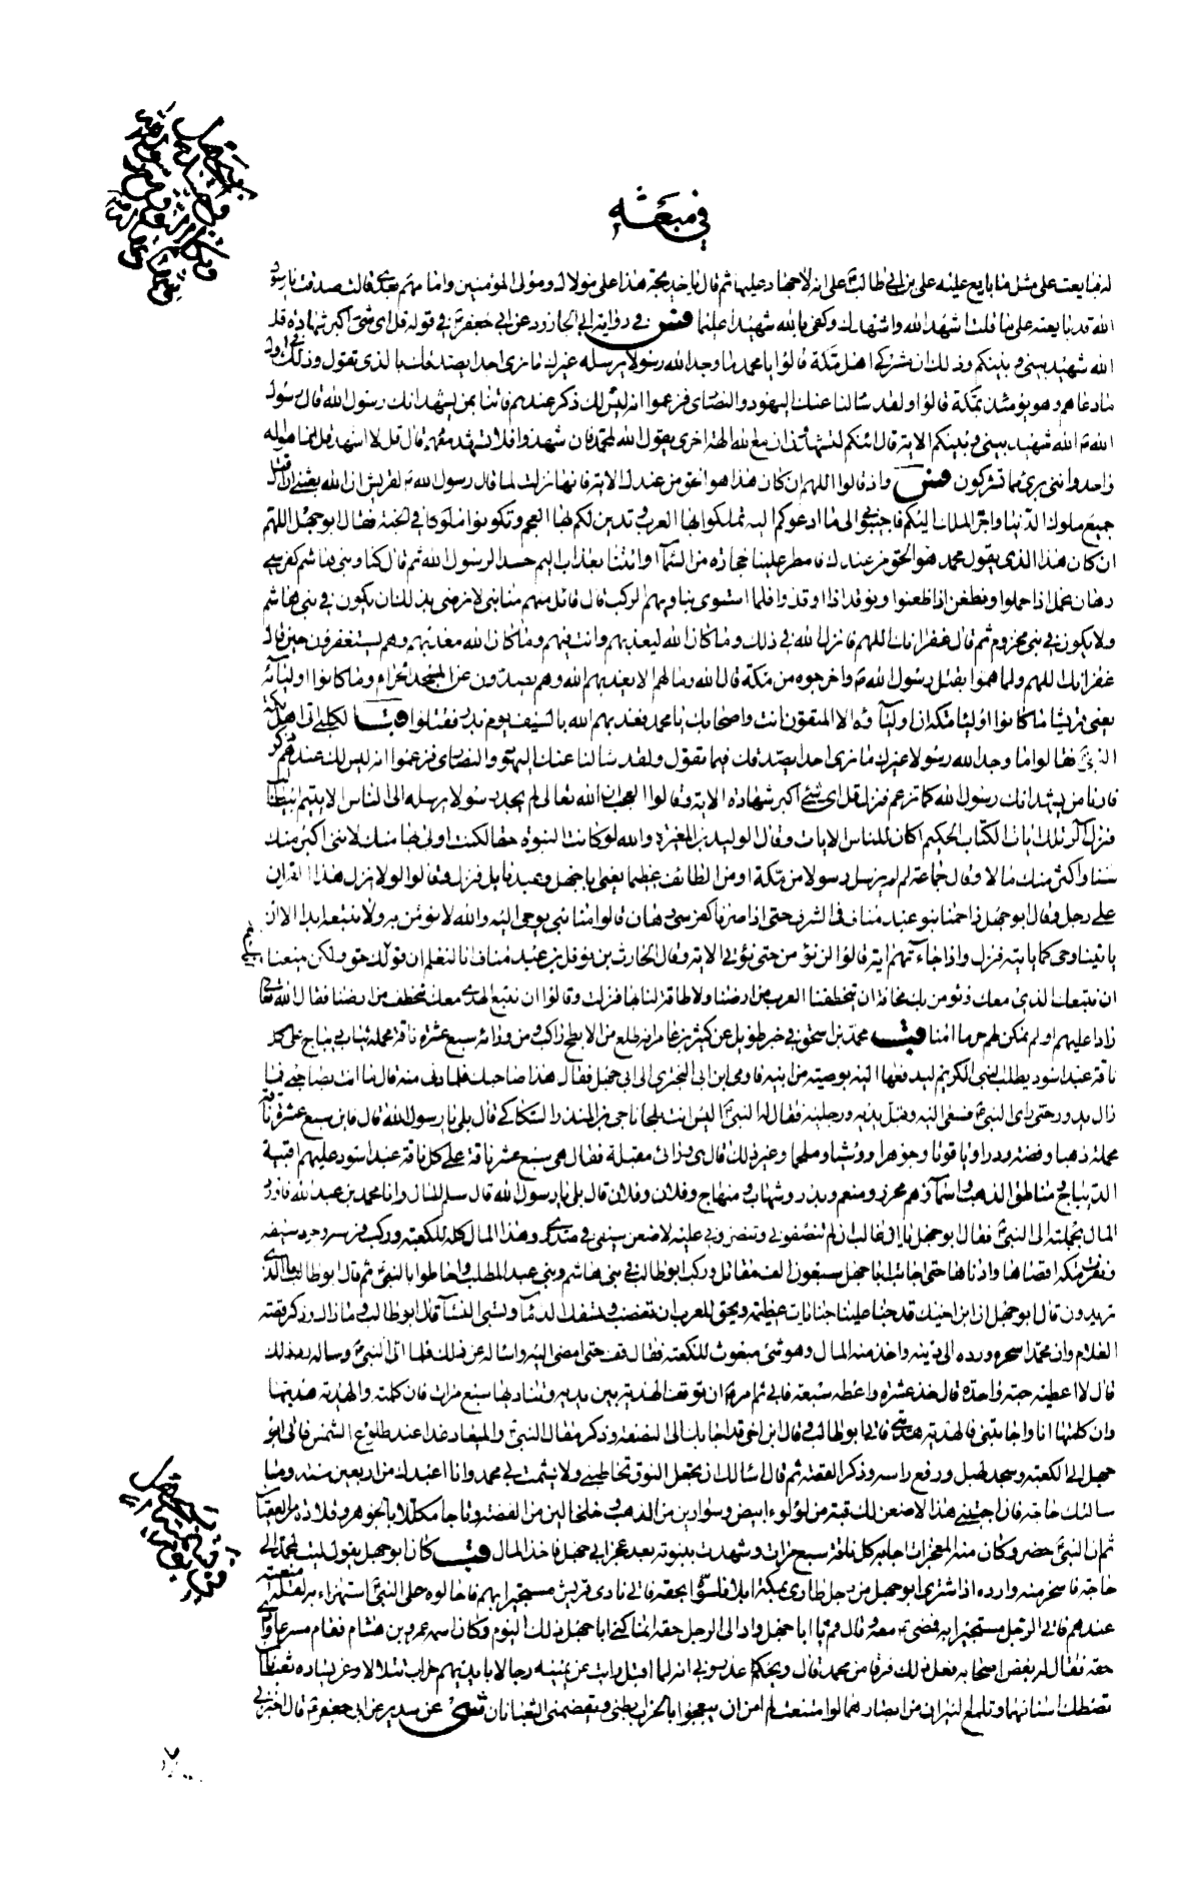 في مبعثه
له فبايعت على مثل ما بايع عليه علي بن ابي طالب على انه لا جهاد عليها ثم قال يا خديجة هذا علي مولاك ومولى المؤمنين وامامهم بعدي قالت صدقت يا رسول
الله قد بايعته على ما قلت اشهد الله واشهدك وكفى بالله شهيدا عليما فس في رواية ابي الجارود عن ابي جعفر ع في قوله قل اي شئ اكبر شهادة قل
الله شهيد بيني وبينكم وذلك ان مشركي اهل مكة قالوا يا محمد ما وجد الله رسولا يرسله غيرك ما نرى احدا يصدقك بالذي تقول وذلك في اول
ما دعاهم وهو يومئذ بمكة قالوا ولقد سالنا عنك اليهود والنصارى فزعموا انه ليس لك ذكر عندهم فائتنا بمن يشهد انك رسول الله قال رسول
الله ص الله شهيد بيني وبينكم الاية قال ائنكم لتشهدون ان مع الله الهة اخرى يقول الله لمحمد فان شهدوا فلا تشهد معهم قال قل لا اشهد قل انما هو اله
واحد وانني برئ مما تشركون فس واذ قالوا اللهم ان كان هذا هو الحق من عندك الاية فانها نزلت لما قال رسول الله ص لقريش ان الله بعثني ان اقتل
جميع ملوك الدنيا واجر الملك اليكم فاجيبوني الى ما ادعوكم اليه تملكوا بها العرب وتدين لكم بها العجم وتكونوا ملوكا في الجنة فقال ابو جهل اللهم
ان كان هذا الذي يقول محمد هو الحق من عندك فامطر علينا حجارة من السماء او ائتنا بعذاب اليم حسدا لرسول الله ثم قال كنا وبني هاشم كفرسي
رهان نحمل اذا حملوا ونطعن اذا ظعنوا ونوقد اذا اوقدوا فلما استوى بنا وبهم الركب قال قائل منهم منا نبي لا نرضى بذلك ان يكون في بني هاشم
ولا يكون في بني مخزوم ثم قال غفرانك اللهم فانزل الله في ذلك وما كان الله ليعذبهم وانت فيهم وما كان الله معذبهم وهم يستغفرون حين قال
غفرانك اللهم ولما هموا بقتل رسول الله ص واخرجوه من مكة قال الله وما لهم الا يعذبهم الله وهم يصدون عن المسجد الحرام وما كانوا اولياءه
يعني قريشا ما كانوا اولياء مكة ان اولياؤه الا المتقون انت واصحابك يا محمد فعذبهم الله بالسيف يوم بدر فقتلوا قب الكلبي اتى اهل مكة
النبي فقالوا ما وجد الله رسولا غيرك ما نرى احدا يصدقك فيما تقول ولقد سالنا عنك اليهود والنصارى فزعموا انه ليس لك عندهم ذكر
فارنا من يشهد انك رسول الله كما تزعم فنزل قل اي شئ اكبر شهادة الاية وقالوا العجب ان الله تعالى لم يجد رسولا يرسله الى الناس الا يتيم ابي طالب
فنزل الر تلك ايات الكتاب الحكيم اكان للناس الايات وقال الوليد بن المغيرة والله لو كانت النبوة حقا لكنت اولى بها منك لانني اكبر منك
سنا واكثر منك مالا وقال جماعة لم لم يرسل رسولا من مكة او من الطائف عظيما يعني ابا جهل وعبد نايل فنزل وقالوا لولا نزل هذا القران
على رجل وقال ابو جهل زاحمنا بنو عبد مناف في الشرف حتى اذا صرنا كفرسي رهان قالوا منا نبي يوحى اليه والله لا نؤمن به ولا نتبعه ابدا الا ان
ياتينا وحي كما ياتيه فنزل واذا جاءتهم اية قالوا لن نؤمن حتى نؤتى الاية وقال الحارث بن نوفل بن عبد مناف انا لنعلم ان قولك حق ولكن يمنعنا
ان نتبعك الذي معك ونؤمن بك مخافة ان يتخطفنا العرب من ارضنا ولا طاقة لنا بها فنزلت وقالوا ان نتبع الهدى معك نتخطف من ارضنا فقال الله تعالى
رادا عليهم اولم نمكن لهم حرما امنا قب محمد بن اسحق في خبر طويل عن كثير بن عامر انه طلع من الابطح راكب ومن ورائه سبع عشرة ناقة محملة ثياب ديباج على كل
ناقة عبد اسود يطلب النبي الكريم ليدفعها اليه بوصية من ابيه فاومى ابن ابي البختري الى ابي جهل فقال هذا صاحبك فلما دنى منه قال ما انت بصاحبي فما
زال يدور حتى راى النبي ص فسعى اليه وقبل يديه ورجليه فقال له النبي اليس انت لجا ناجي بن المنذر السكاكي قال بلى يا رسول الله قال فاين سبع عشرة ناقة
محملة ذهبا وفضة ودرا وياقوتا وجوهرا ووشيا وملحما وغير ذلك قال هي ورائي مقبلة فقال هي سبع عشرة ناقة على كل ناقة عبد اسود عليهم اقبية
الديباج ومناطق الذهب واسماؤهم محرز ومنعم وبدر وشهاب ومنهاج وفلان وفلان قال بلى يا رسول الله قال سلم المال وانا محمد بن عبد الله فاورد
المال بجملته الى النبي ص فقال ابو جهل يا ال غالب ان لم تنصفوني وتنصروني عليه لاضعن سيفي في صدري وهذا المال كله للكعبة وركب فرسه وجرد سيفه
ونفرت مكة اقصاها وادناها حتى اجابت ابا جهل سبعون الف مقاتل وركب ابو طالب في بني هاشم وبني عبد المطلب واحاطوا بالنبي ثم قال ابو طالب ما الذي
تريدون قال ابو جهل ان ابن اخيك قد جنا علينا جنايات عظيمة ويحق للعرب ان تغضب وتسفك الدماء وتسبي النساء قال ابو طالب وما ذاك وذكر قصة
الغلام وان محمدا سحره ورده الى دينه واخذ منه المال وهو شئ مبعوث للكعبة فقال قف حتى امضي اليه واسأله عن ذلك فلما اتى النبي وساله رد ذلك
قال لا اعطيه حبة واحدة قال خذ عشرة واعطه سبعة فابى ثم امر ان توقف الهدية بين يديه ونناديها سبع مرات فان كلمته والهدية هديتها
وان كلمتها انا واجابتني فالهدية هديتي فاتى ابو طالب وقال ان ابن اخي قد اجابك الى النصفة وذكر مقال النبي ص والميعاد غدا عند طلوع الشمس فاتى ابو
جهل الى الكعبة وسجد لهبل ورفع راسه وذكر القصة ثم قال اسالك ان تجعل النوق تخاطبني ولا يشمت بي محمد وانا اعبدك من اربعين سنة وما
سالتك حاجة فان اجبتني هذا لاضعن لك قبة من لؤلؤ ابيض وسوارين من الذهب وخلخالين من الفضة وتاجا مكللا بالجوهر وقلادة من العقيان
ثم ان النبي ص حضر وكان منه المعجزات اجابه كل ناقة سبع مرات وشهدت بنبوته بعد عجز ابي جهل فاخذ المال قب كان ابو جهل يقول ليت لمحمد الي
حاجة فاسخر منه وارده اذ اشترى ابو جهل من رجل طارئ بمكة ابلا فلسوا بحقه فاتى نادي قريش مستجيرا بهم فاحالوه على النبي استهزاء به لقلة منعته
عندهم فاتى الرجل مستجيرا به فمضى معه وقال قم يا ابا جهل واد الى الرجل حقه انما كني ابا جهل ذلك اليوم وكان اسمه عمرو بن هشام فقام مسرعا وادى
حقه فقال له بعض اصحابه فعلت ذلك فرقا من محمد قال ويحكم اعذروني انه لما اقبل رايت عن يمينه رجالا بايديهم حراب تتلالا وعن يساره ثعبانان
تصطك اسنانهما وتلمع النيران من ابصارهما لو امتنعت لم امن ان يبعجوا بالحراب بطني ويقضمني الثعبانان شي عن سدير عن ابي جعفر ع قال اخبرني